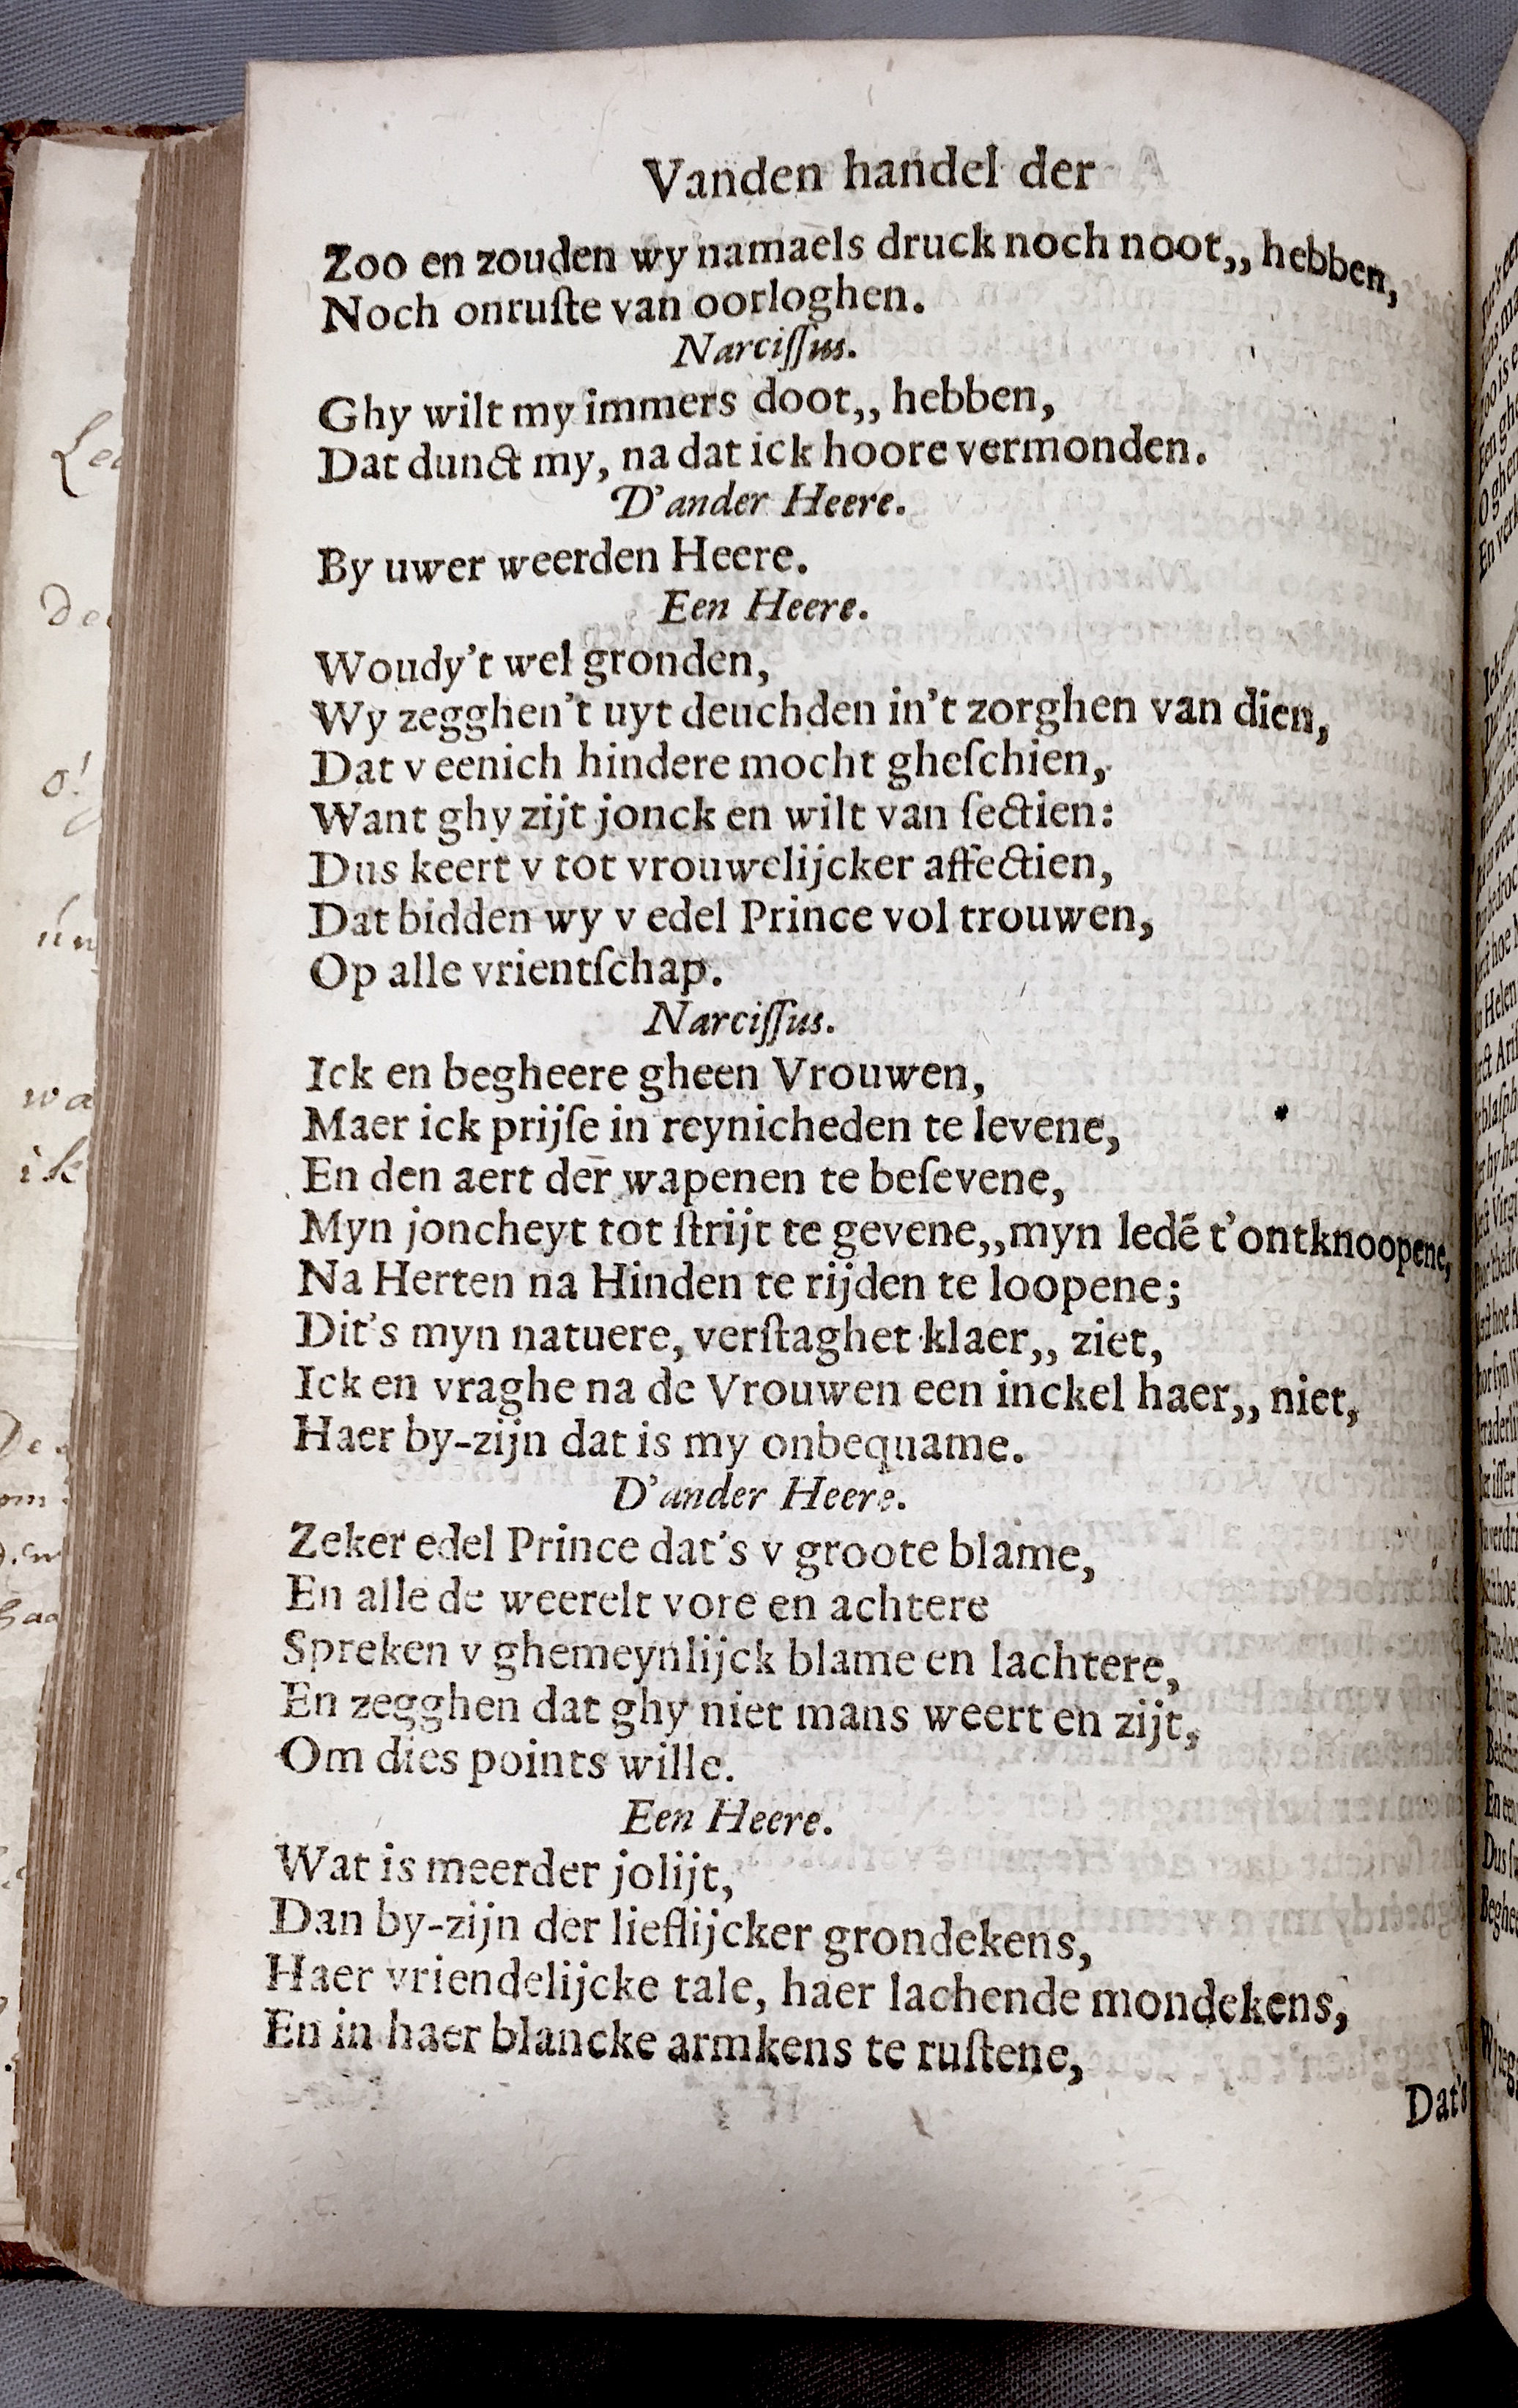 Vanden handel der
Zoo en zouden wy namaels druck noch noot,, hebben,
Noch onruſte van oorloghen.
Narciſſus.
Ghy wilt my immers doot,, hebben,
Dat dunct my, na dat ick hoore vermonden.
D'ander Heere.
By uwer weerden Heere.
Een Heere.
Woudy't wel gronden,
Wy zegghen't uyt deuchden in't zorghen van dien,
Dat v eenich hindere mocht gheſchien,
Want ghy zijt jonck en wilt van ſectien:
Dus keert v tot vrouwelijcker affectien,
Dat bidden wy v edel Prince vol trouwen,
Op alle vrientſchap.
Narciſſus.
Ick en begheere gheen Vrouwen,
Maer ick prijſe in reynicheden te levene,
En den aert der wapenen te beſevene,
Myn joncheyt tot ſtrijt te gevene,,myn ledē t'ontknoopene,
Na Herten na Hinden te rijden te loopene;
Dit's myn natuere, verſtaghet klaer,, ziet,
Ick en vraghe na de Vrouwen een inckel haer,, niet,
Haer by-zijn dat is my onbequame.
D'ander Heere.
Zeker edel Prince dat's v groote blame,
En alle de weerelt vore en achtere
Spreken v ghemeynlijck blame en lachtere,
En zegghen dat ghy niet mans weert en zijt,
Om dies points wille.
Een Heere.
Wat is meerder jolijt,
Dan by-zijn der lieflijcker grondekens,
Haer vriendelijcke tale, haer lachende mondekens,
En in haer blancke armkens te ruſtene,
Dat's